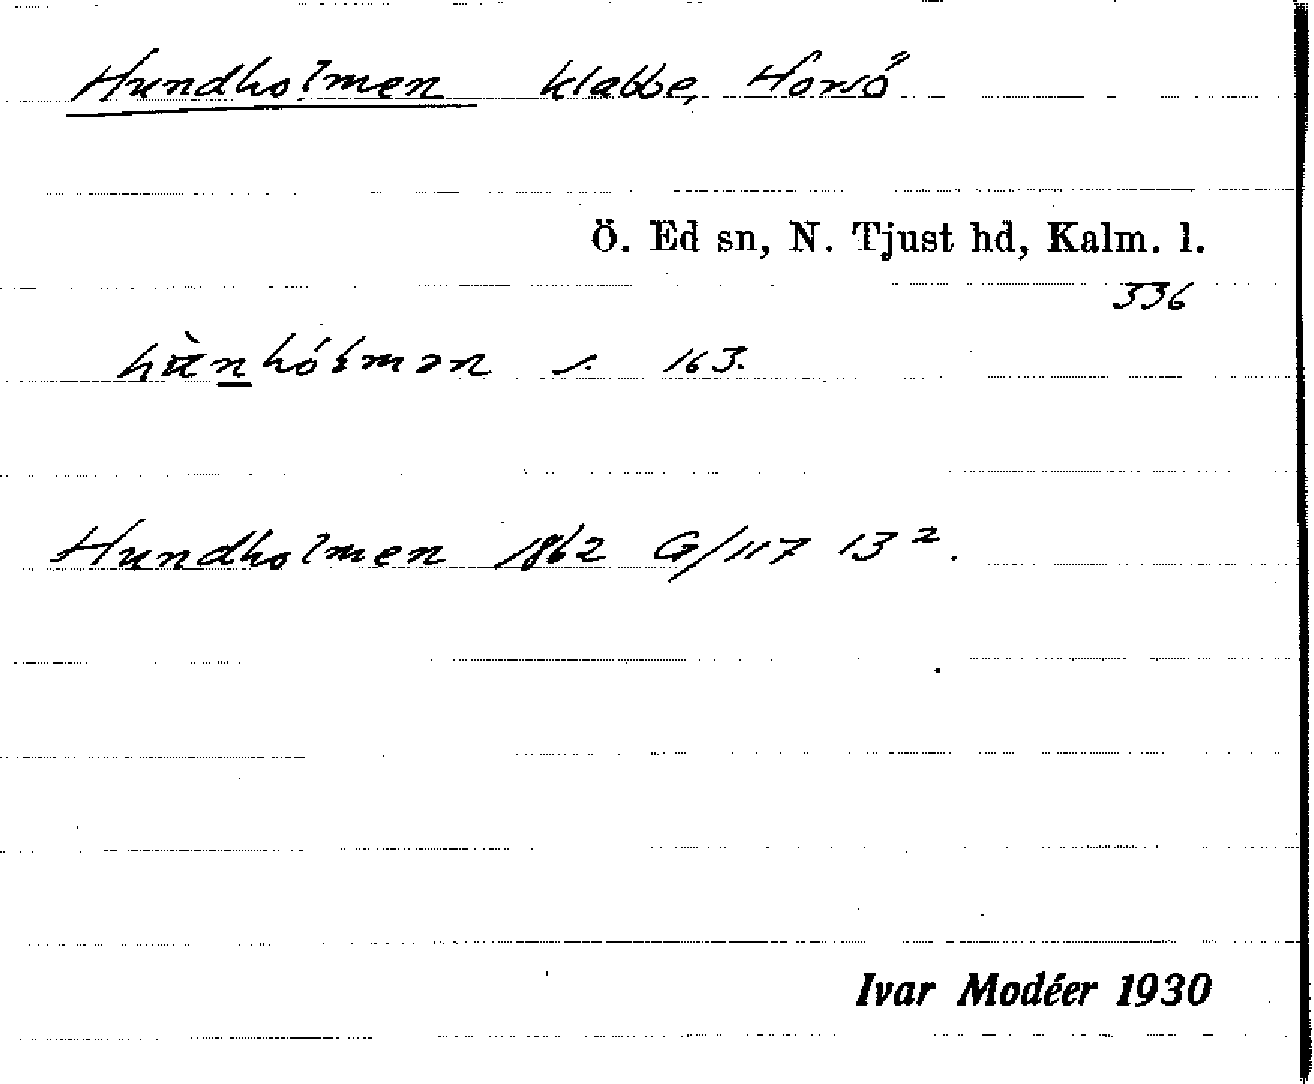 Hundholmen klabbe, Horsö
Ö. Ed sn, N. Tjust hd, Kalm. l.
336
s. 163.
Hundholmen 1862 G/117 13².
Ivar Modéer 1930